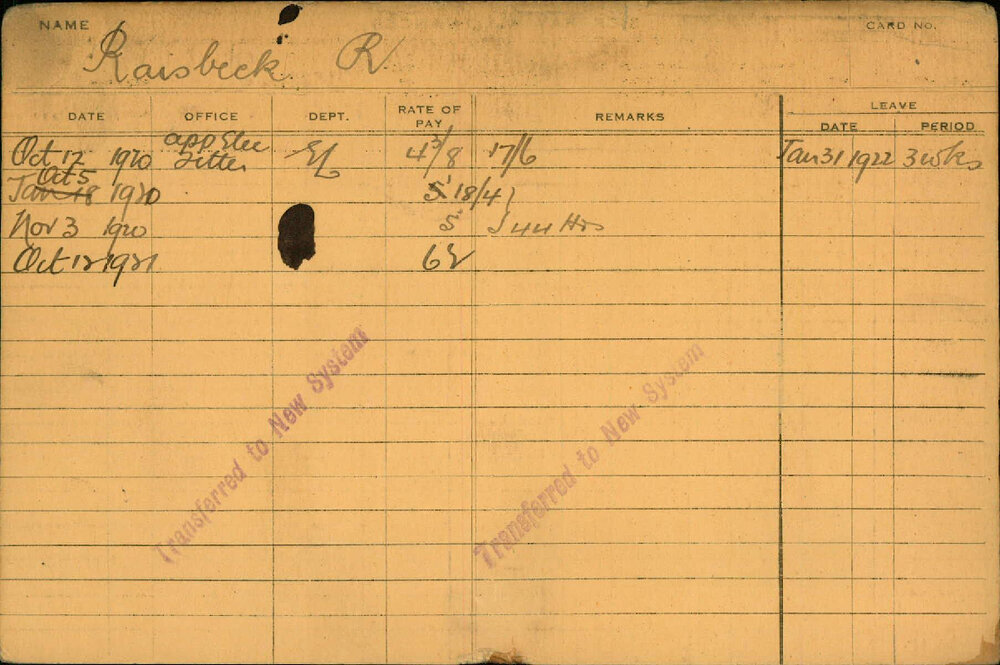 NAME CARD NO.
Raisbeck R
DATE OFFICE DEPT. RATE OF PAY REMARKS LEAVE
DATE PERIOD
Oct 12 1920 app Elec Fitter EL 4 3/8 17/6 Jan 31 1922 3 wks
Oct 5
Jan 18 1920 5 18/4
Nov 3 1920 5 44 Hrs
Oct 12 1921
Transferred to New System
Transferred to New System